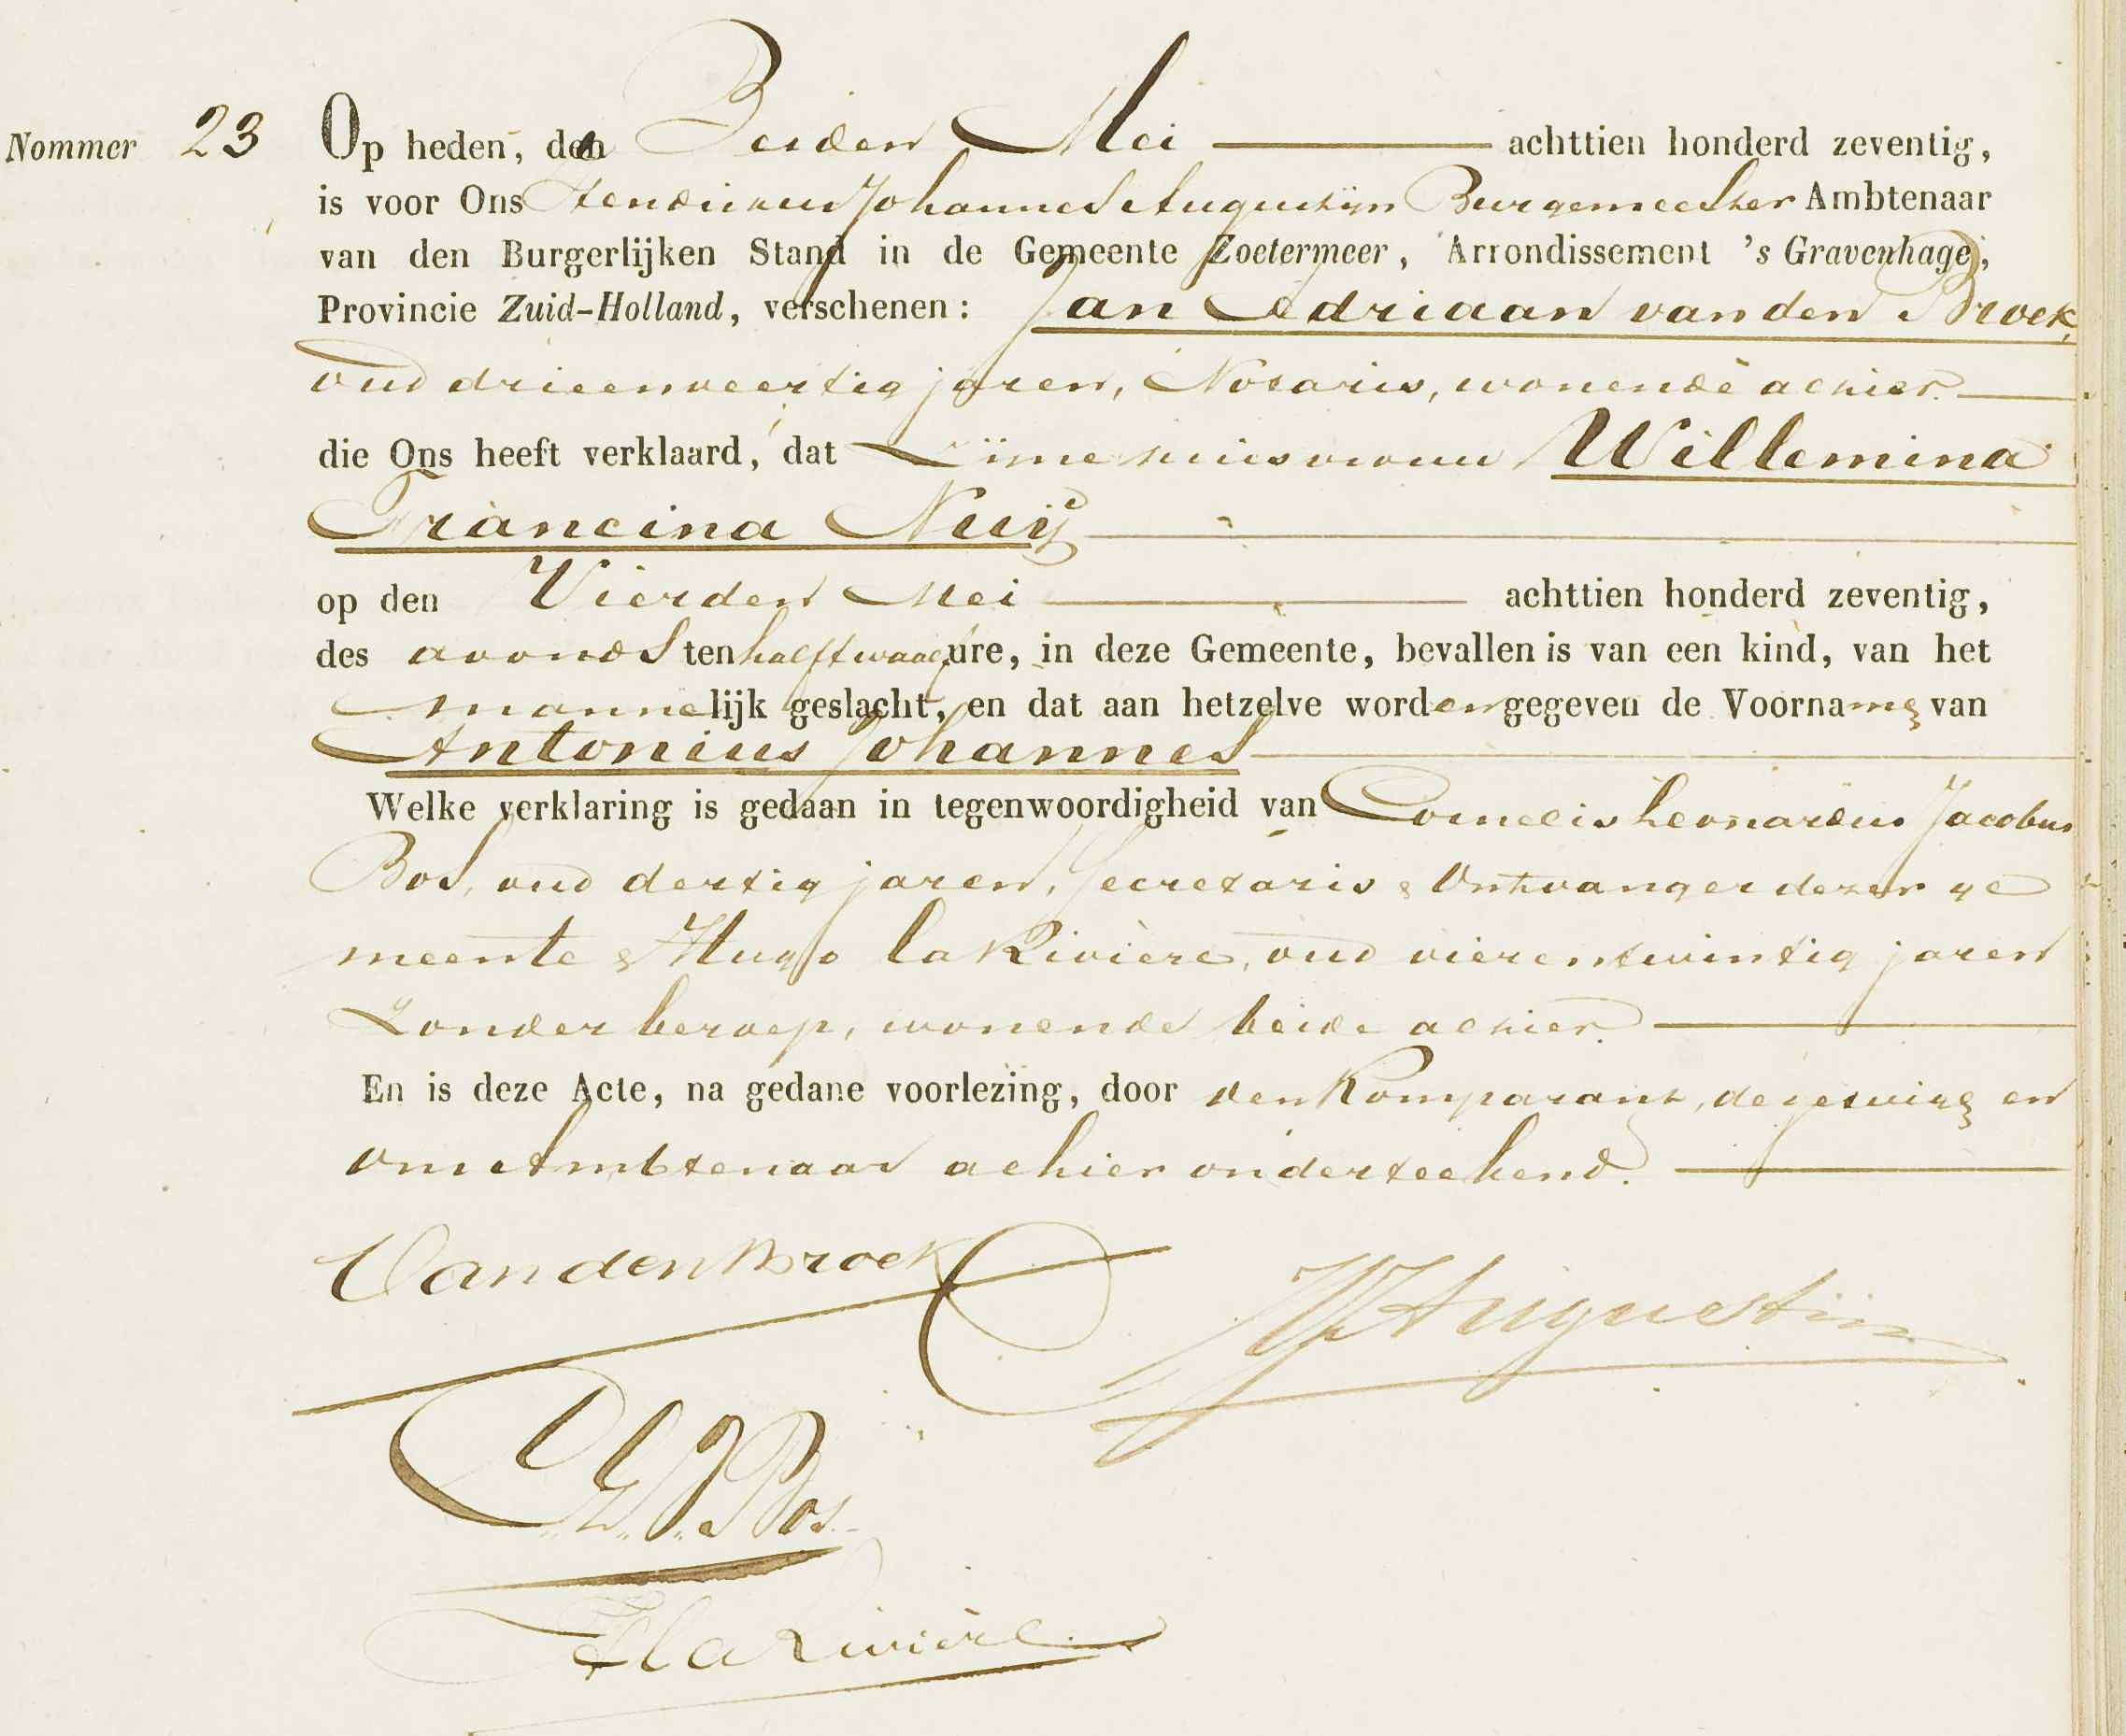 Nommer 23 Op heden, den Zesden Mei achttien honderd zeventig,
is voor Ons Hendricus Johannes Augustijn Burgemeester Ambtenaar
van den Burgerlijken Stand in de Gemeente Zoetermeer, Arrondissement 's Gravenhage,
Provincie Zuid-Holland, verschenen: Jan Adriaan van den Broek,
oud drieenveertig jaren, Notaris, wonende alhier.
die Ons heeft verklaard, dat Zijne huisvrouw Willemina
Francina Nuij
op den Vierden Mei achttien honderd zeventig,
des avonds ten half twaalf ure, in deze Gemeente, bevallen is van een kind, van het
mannelijk geslacht, en dat aan hetzelve worden gegeven de Voornamen van
Antonius Johannes
Welke verklaring is gedaan in tegenwoordigheid van Cornelis Leonardus Jacobus
Bos, oud dertig jaren, Secretaris & Ontvanger dezer ge
meente & Hugo la Rivière, oud vierentwintig jaren
Zonder beroep, wonende beide alhier.
En is deze Acte, na gedane voorlezing, door den Komparant, de getuigen en
ons Ambtenaar alhier onderteekend.
Van den Broek
HJAugustijn
C.L.J. Bos.
H la Rivière